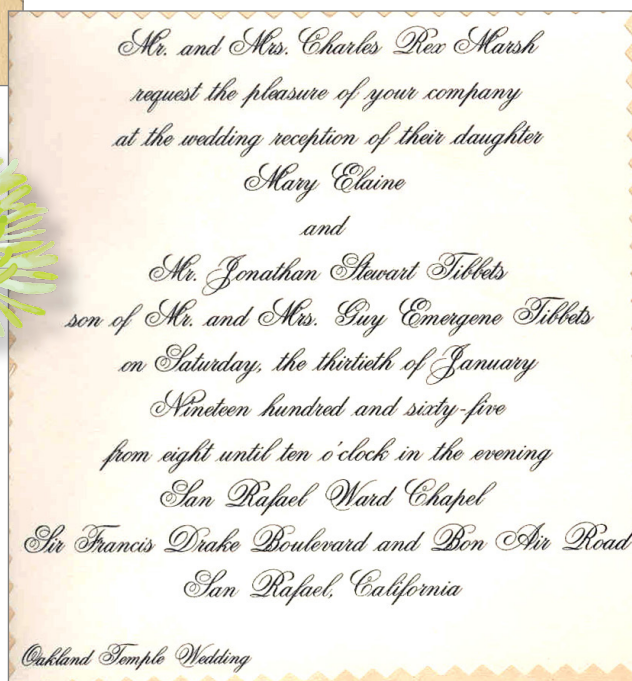 Mr. and Mrs. Charles Rex Marsh
request the pleasure of your company
at the wedding reception of their daughter
Mary Elaine
and
Mr. Jonathan Stewart Tibbets
son of Mr. and Mrs. Guy Emergene Tibbets
on Saturday, the thirtieth of January
Nineteen hundred and sixty-five
from eight until ten o'clock in the evening
San Rafael Ward Chapel
Sir Francis Drake Boulevard and Bon Air Road
San Rafael, California
Oakland Temple Wedding